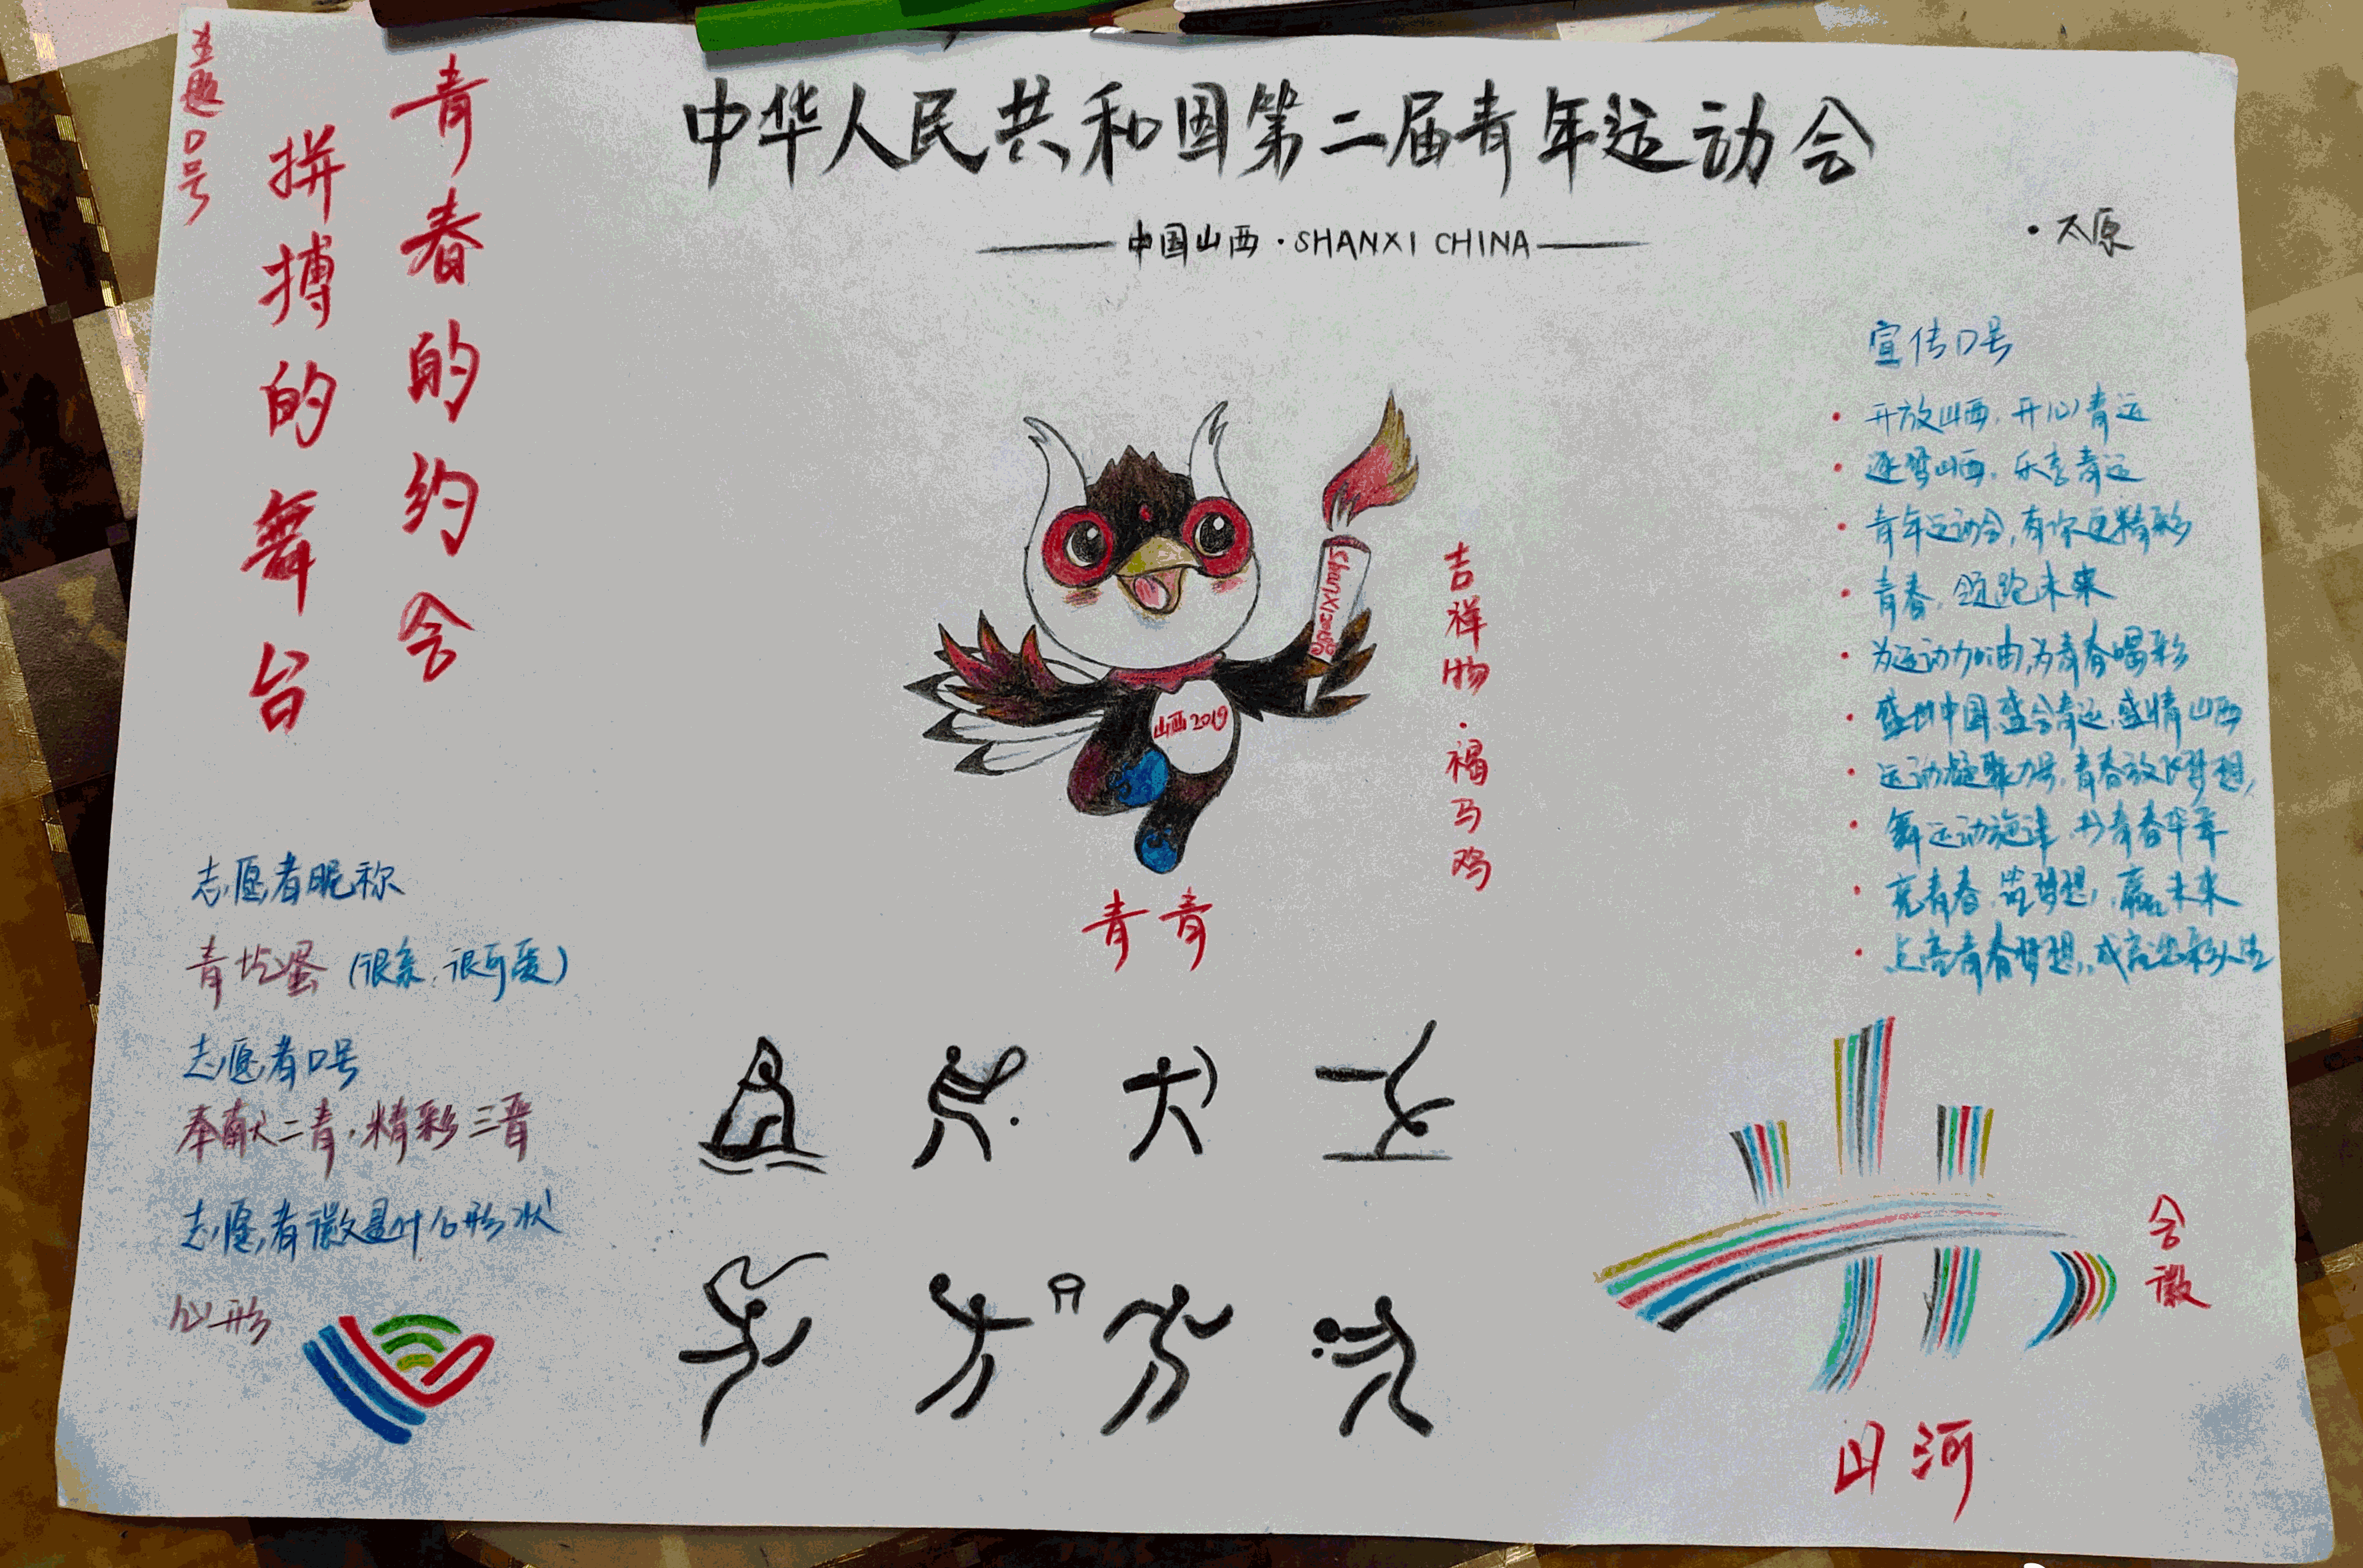 中华人民共和国第二届青年运动会
中国山西·SHANXI CHINA
·太原
主题口号
青春的约会
拼搏的舞台
宣传口号
·开放山西,开心青运
·逐梦山西,乐享青运
·青年运动会,有你更精彩
·青春,领跑未来
·为运动加油,为青春喝彩
·盛世中国,盛会青运,盛情山西
·运动凝聚力量,青春放飞梦想,
·舞运动旋律,书青春华章
·亮青春,筑梦想,赢未来
·点亮青春梦想,成就出彩人生
Shanxi2019
山西2019
吉祥物·褐马鸡
青青
志愿者昵称
青圪蛋(很亲,很可爱)
志愿者口号
奉献二青,精彩三晋
志愿者徽是什么形状
心形
会徽
山河